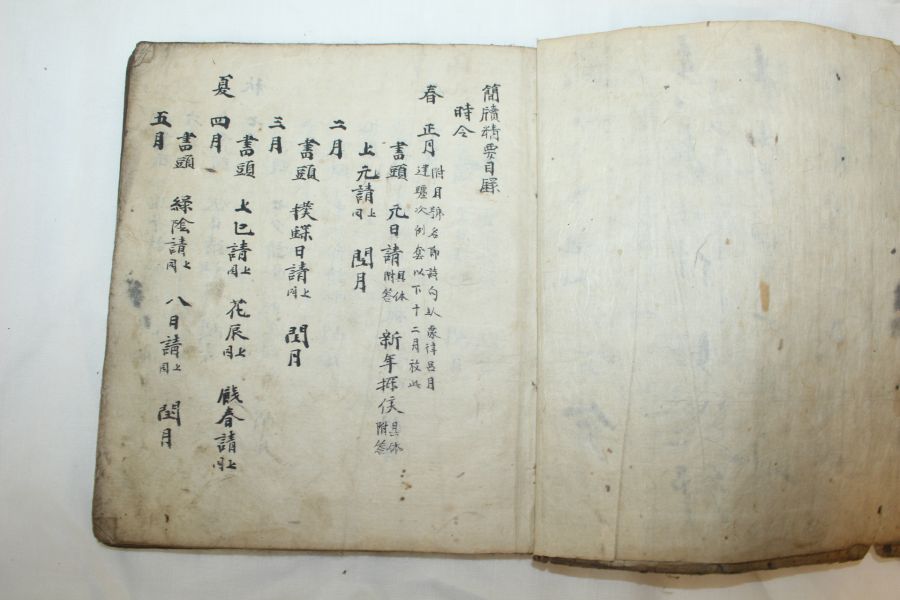 簡牘精要目錄
時令
春 正月 附月號名節詩句及象律呂月
建躔次例套以下十二月放此
書頭 元日請 具体附答 新年探候 具体附答
上元請 上同 閏月
二月
書頭 撲蝶日請 上同 閏月
三月
書頭 上巳請 上同 花辰 上同 餞春請 上同
夏 四月
書頭 綠陰請 上同 八日請 上同 閏月
五月